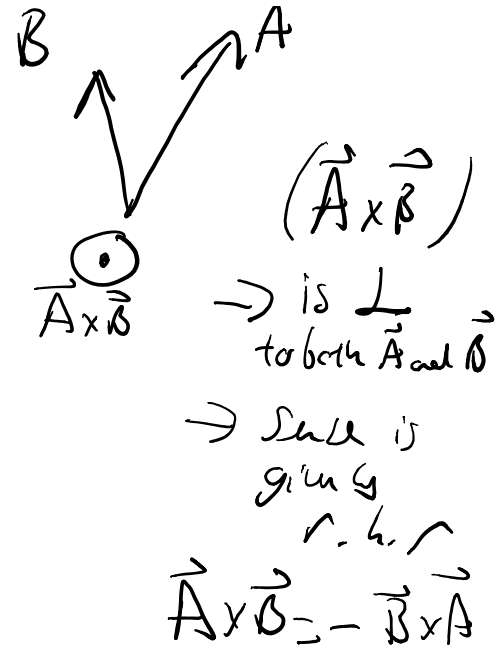 B A
A⃗ × B⃗
(A⃗ × B⃗)
→ is ⊥
to both A⃗ and B⃗
→ Sense is
given by
r.h.r
A⃗ × B⃗ = - B⃗ × A⃗